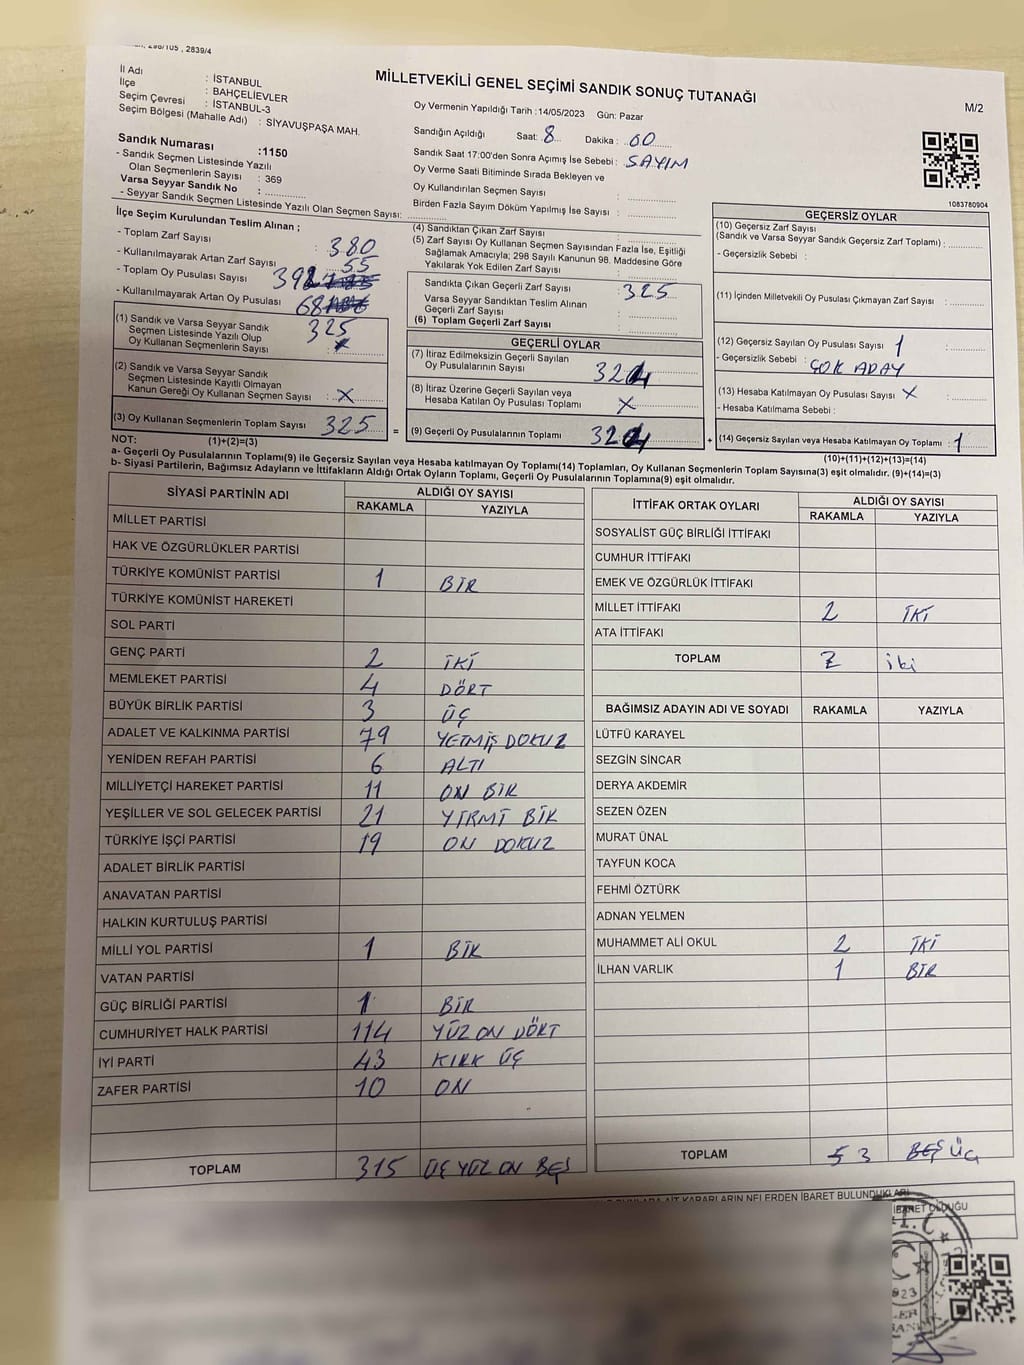 298/105 , 2839/4
MİLLETVEKİLİ GENEL SEÇİMİ SANDIK SONUÇ TUTANAĞI
M/2
İl Adı : İSTANBUL
İlçe : BAHÇELİEVLER
Seçim Çevresi : İSTANBUL-3
Seçim Bölgesi (Mahalle Adı) : SİYAVUŞPAŞA MAH.
Sandık Numarası :1150
- Sandık Seçmen Listesinde Yazılı
Olan Seçmenlerin Sayısı : 369
Varsa Seyyar Sandık No :
- Seyyar Sandık Seçmen Listesinde Yazılı Olan Seçmen Sayısı:
Oy Vermenin Yapıldığı Tarih :14/05/2023 Gün: Pazar
Sandığın Açıldığı Saat: 8 Dakika: 00
Sandık Saat 17:00'den Sonra Açımış İse Sebebi : SAYIM
Oy Verme Saati Bitiminde Sırada Bekleyen ve
Oy Kullandırılan Seçmen Sayısı :
Birden Fazla Sayım Döküm Yapılmış İse Sayısı :
1083780904
İlçe Seçim Kurulundan Teslim Alınan ;
- Toplam Zarf Sayısı : 380
- Kullanılmayarak Artan Zarf Sayısı : 55
- Toplam Oy Pusulası Sayısı 392
- Kullanılmayarak Artan Oy Pusulası 68
(1) Sandık ve Varsa Seyyar Sandık
Seçmen Listesinde Yazılı Olup
Oy Kullanan Seçmenlerin Sayısı : 325
(2) Sandık ve Varsa Seyyar Sandık
Seçmen Listesinde Kayıtlı Olmayan
Kanun Gereği Oy Kullanan Seçmen Sayısı : X
(3) Oy Kullanan Seçmenlerin Toplam Sayısı 325
=
(4) Sandıktan Çıkan Zarf Sayısı :
(5) Zarf Sayısı Oy Kullanan Seçmen Sayısından Fazla İse, Eşitliği
Sağlamak Amacıyla; 298 Sayılı Kanunun 98. Maddesine Göre
Yakılarak Yok Edilen Zarf Sayısı :
Sandıkta Çıkan Geçerli Zarf Sayısı : 325
Varsa Seyyar Sandıktan Teslim Alınan
Geçerli Zarf Sayısı :
(6) Toplam Geçerli Zarf Sayısı :
GEÇERLİ OYLAR
(7) İtiraz Edilmeksizin Geçerli Sayılan
Oy Pusulalarının Sayısı : 324
(8) İtiraz Üzerine Geçerli Sayılan veya
Hesaba Katılan Oy Pusulası Toplamı : X
(9) Geçerli Oy Pusulalarının Toplamı : 324
+
GEÇERSİZ OYLAR
(10) Geçersiz Zarf Sayısı
(Sandık ve Varsa Seyyar Sandık Geçersiz Zarf Toplamı) :
- Geçersizlik Sebebi :
(11) İçinden Milletvekili Oy Pusulası Çıkmayan Zarf Sayısı :
(12) Geçersiz Sayılan Oy Pusulası Sayısı : 1
- Geçersizlik Sebebi : ÇOK ADAY
(13) Hesaba Katılmayan Oy Pusulası Sayısı : X
- Hesaba Katılmama Sebebi :
(14) Geçersiz Sayılan veya Hesaba Katılmayan Oy Toplamı : 1
NOT: (1)+(2)=(3)
(10)+(11)+(12)+(13)=(14)
a- Geçerli Oy Pusulalarının Toplamı(9) ile Geçersiz Sayılan veya Hesaba katılmayan Oy Toplamı(14) Toplamları, Oy Kullanan Seçmenlerin Toplam Sayısına(3) eşit olmalıdır. (9)+(14)=(3)
b- Siyasi Partilerin, Bağımsız Adayların ve İttifakların Aldığı Ortak Oyların Toplamı, Geçerli Oy Pusulalarının Toplamına(9) eşit olmalıdır.
SİYASİ PARTİNİN ADI ALDIĞI OY SAYISI
RAKAMLA YAZIYLA
MİLLET PARTİSİ
HAK VE ÖZGÜRLÜKLER PARTİSİ
TÜRKİYE KOMÜNİST PARTİSİ 1 BİR
TÜRKİYE KOMÜNİST HAREKETİ
SOL PARTİ
GENÇ PARTİ 2 İKİ
MEMLEKET PARTİSİ 4 DÖRT
BÜYÜK BİRLİK PARTİSİ 3 ÜÇ
ADALET VE KALKINMA PARTİSİ 79 YETMİŞ DOKUZ
YENİDEN REFAH PARTİSİ 6 ALTI
MİLLİYETÇİ HAREKET PARTİSİ 11 ON BİR
YEŞİLLER VE SOL GELECEK PARTİSİ 21 YİRMİ BİR
TÜRKİYE İŞÇİ PARTİSİ 19 ON DOKUZ
ADALET BİRLİK PARTİSİ
ANAVATAN PARTİSİ
HALKIN KURTULUŞ PARTİSİ
MİLLİ YOL PARTİSİ 1 BİR
VATAN PARTİSİ
GÜÇ BİRLİĞİ PARTİSİ 1 BİR
CUMHURİYET HALK PARTİSİ 114 YÜZ ON DÖRT
İYİ PARTİ 43 KIRK ÜÇ
ZAFER PARTİSİ 10 ON
TOPLAM 315 ÜÇ YÜZ ON BEŞ
İTTİFAK ORTAK OYLARI ALDIĞI OY SAYISI
RAKAMLA YAZIYLA
SOSYALİST GÜÇ BİRLİĞİ İTTİFAKI
CUMHUR İTTİFAKI
EMEK VE ÖZGÜRLÜK İTTİFAKI
MİLLET İTTİFAKI 2 İKİ
ATA İTTİFAKI
TOPLAM 2 iki
BAĞIMSIZ ADAYIN ADI VE SOYADI RAKAMLA YAZIYLA
LÜTFÜ KARAYEL
SEZGİN SİNCAR
DERYA AKDEMİR
SEZEN ÖZEN
MURAT ÜNAL
TAYFUN KOCA
FEHMİ ÖZTÜRK
ADNAN YELMEN
MUHAMMET ALİ OKUL 2 İKİ
İLHAN VARLIK 1 BİR
TOPLAM 5 3 BEŞ ÜÇ
AİT KARARLARIN NELERDEN İBARET BULUNDUKLARI
İBARET OLDUĞU